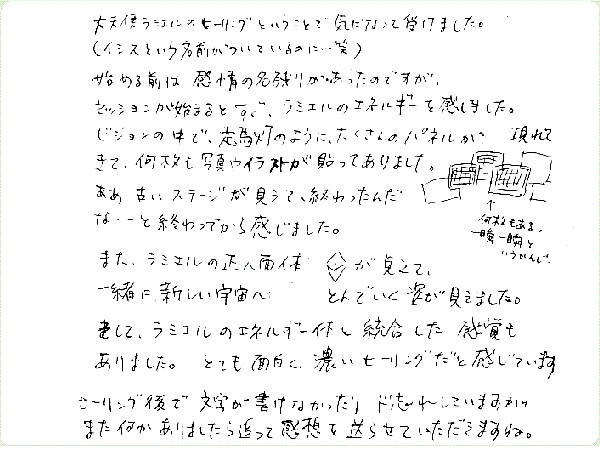 大天使ラミエルのヒーリングということで気になって受けました。
(イシスという名前がついているのに…笑)
始める前は 感情の名残りがあったのですが、
セッションが始まるとすぐ、ラミエルのエネルギーを感じました。
ビジョンの中で、走馬灯のように、たくさんのパネルが 現れて
きて、何枚も写真やイラストが貼ってありました。
ああ 古いステージが見えて、終わったんだ
な…と終わってから感じました。
何枚もある。
一瞬一瞬と
いうかんじ。
また、ラミエルの正八面体 が見えて、
一緒に新しい宇宙へ とんでいく姿が見えました。
そして、ラミエルのエネルギー体と統合した 感覚も
ありました。 とても面白く、濃いヒーリングだと感じています
ヒーリング後で文字が書けなかったり ド忘れしていますが
また何かありましたら追って感想を送らせていただきますね。